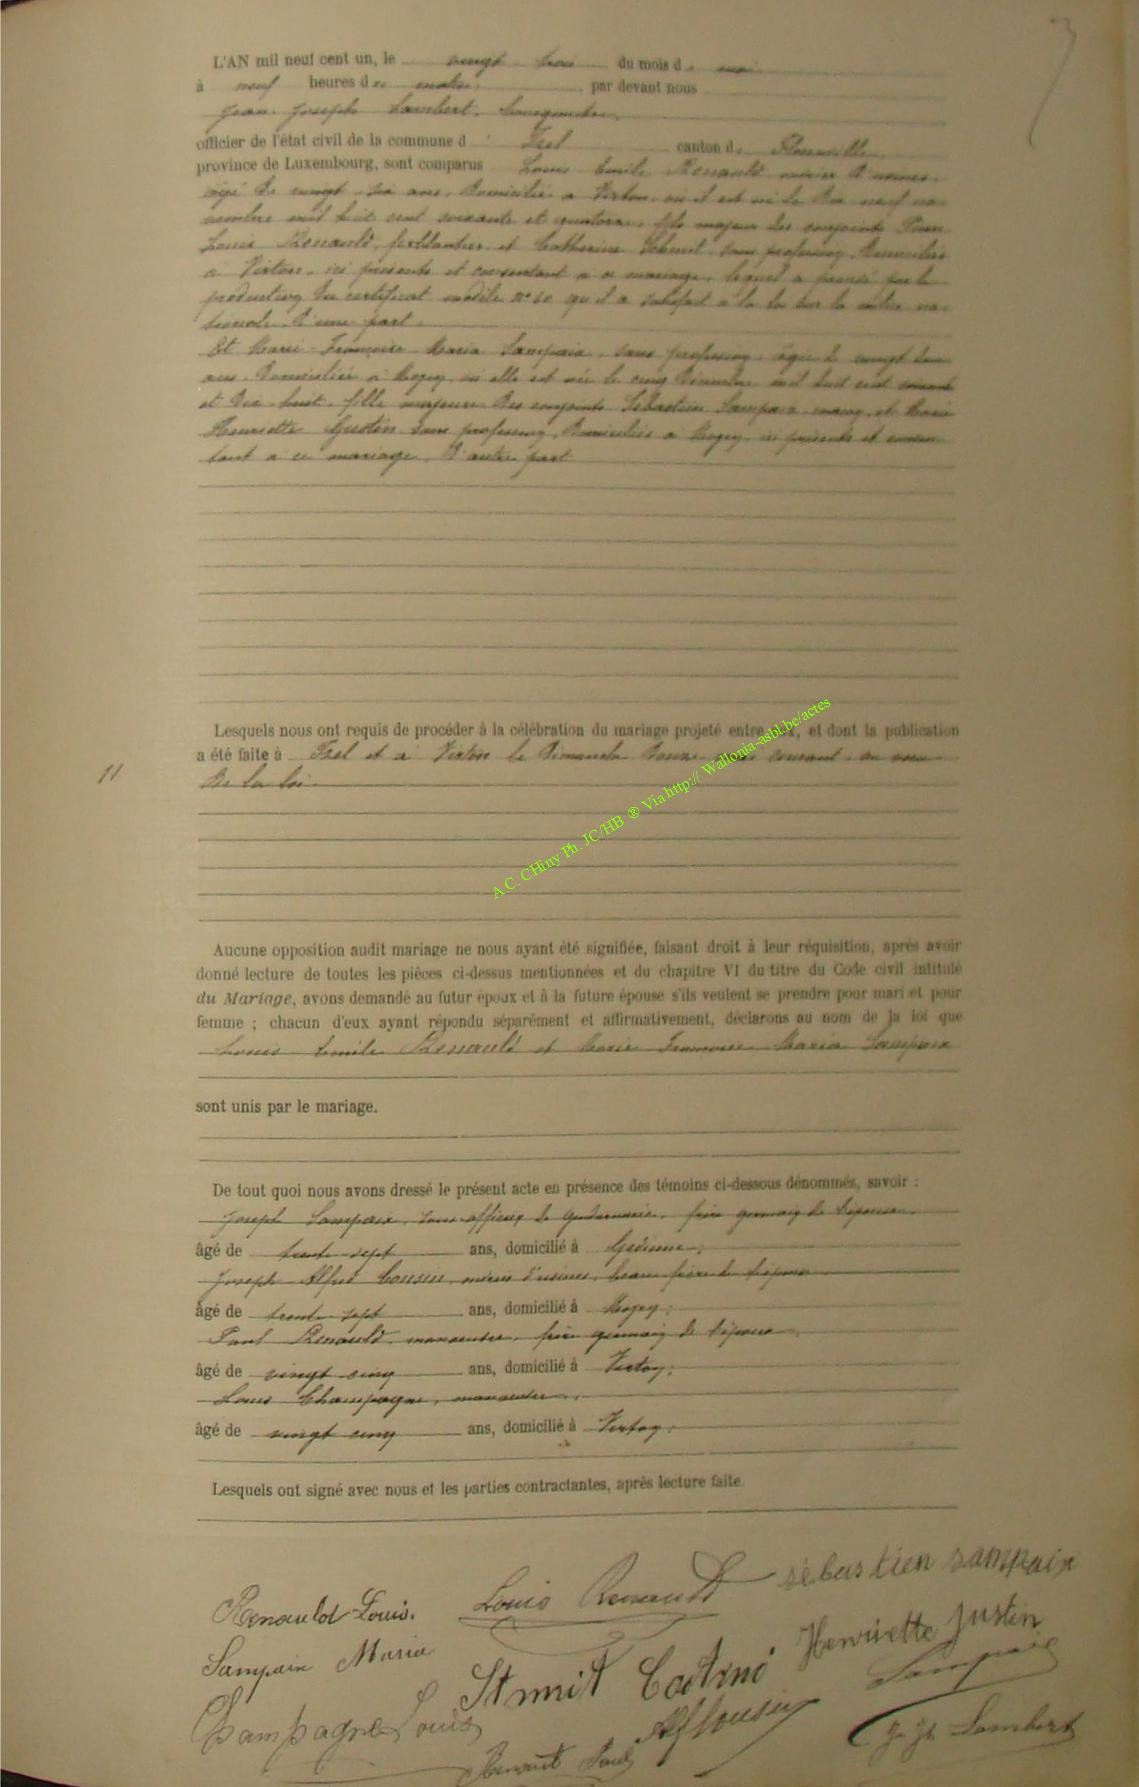 L'AN mil neuf cent un, le vingt trois du mois de mai
à neuf heures du matin, par devant nous
Jean Joseph Lambert, bourgmestre,
officier de l'état civil de la commune d Izel canton de Florenville
province de Luxembourg, sont comparus Louis Emile Renauld, ouvrier d'usines,
âgé de vingt six ans, domicilié à Virton, où il est né le dix neuf no-
vembre mil huit cent soixante et quatorze, fils majeur des conjoints Pierre
Louis Renauld, ferblantier, et Catherine Schmit, sans profession, domiciliés
à Virton, ici présents et consentant à ce mariage, lequel a prouvé par la
production du certificat modèle n° qu'il a satisfait à la loi sur la milice na-
tionale d'une part.
Et Marie Françoise Maria Sampaix, sans profession, âgée de vingt deux
ans, domiciliée à Moyen, où elle est née le cinq décembre mil huit cent soixante
et dix huit, fille majeure des conjoints Sébastien Sampaix, maçon, et Marie
Henriette Justin sans profession, domiciliés à Moyen, ici présents et consen-
tant à ce mariage, d'autre part
Lesquels nous ont requis de procéder à la célébration du mariage projeté entre eux, et dont la publication
a été faite à Izel et à Virton le dimanche douze mai courant, au vœu
11
de la loi.
A.C. CHiny Ph. JC/HB ® Via http:// Wallonia-asbl.be/actes
Aucune opposition audit mariage ne nous ayant été signifiée, faisant droit à leur réquisition, après avoir
donné lecture de toutes les pièces ci-dessus mentionnées et du chapitre VI du titre du Code civil intitulé
du Mariage, avons demandé au futur époux et à la future épouse s'ils veulent se prendre pour mari et pour
femme ; chacun d'eux ayant répondu séparément et affirmativement, déclarons au nom de la loi que
Louis Emile Renauld et Marie Françoise Maria Sampaix
sont unis par le mariage.
De tout quoi nous avons dressé le présent acte en présence des témoins ci-dessous dénommés, savoir :
Joseph Sampaix, sous-officier de gendarmerie, frère germain de l'épouse,
âgé de trente sept ans, domicilié à Gedinne;
Joseph Alfred Cousin, ouvrier d'usines, beau frère de l'épouse
âgé de trente sept ans, domicilié à Moyen;
Paul Renauld, manœuvre, frère germain de l'époux,
âgé de vingt cinq ans, domicilié à Virton;
Louis Champagne, manœuvre,
âgé de vingt cinq ans, domicilié à Virton;
Lesquels ont signé avec nous et les parties contractantes, après lecture faite.
Renauld Louis. Louis Renauld sébastien sampaix
Sampaix Maria Henriette Justin
Champagne Louis Catrine Sampaix
Alf Cousin J. Jh Lambert
Renauld Paul